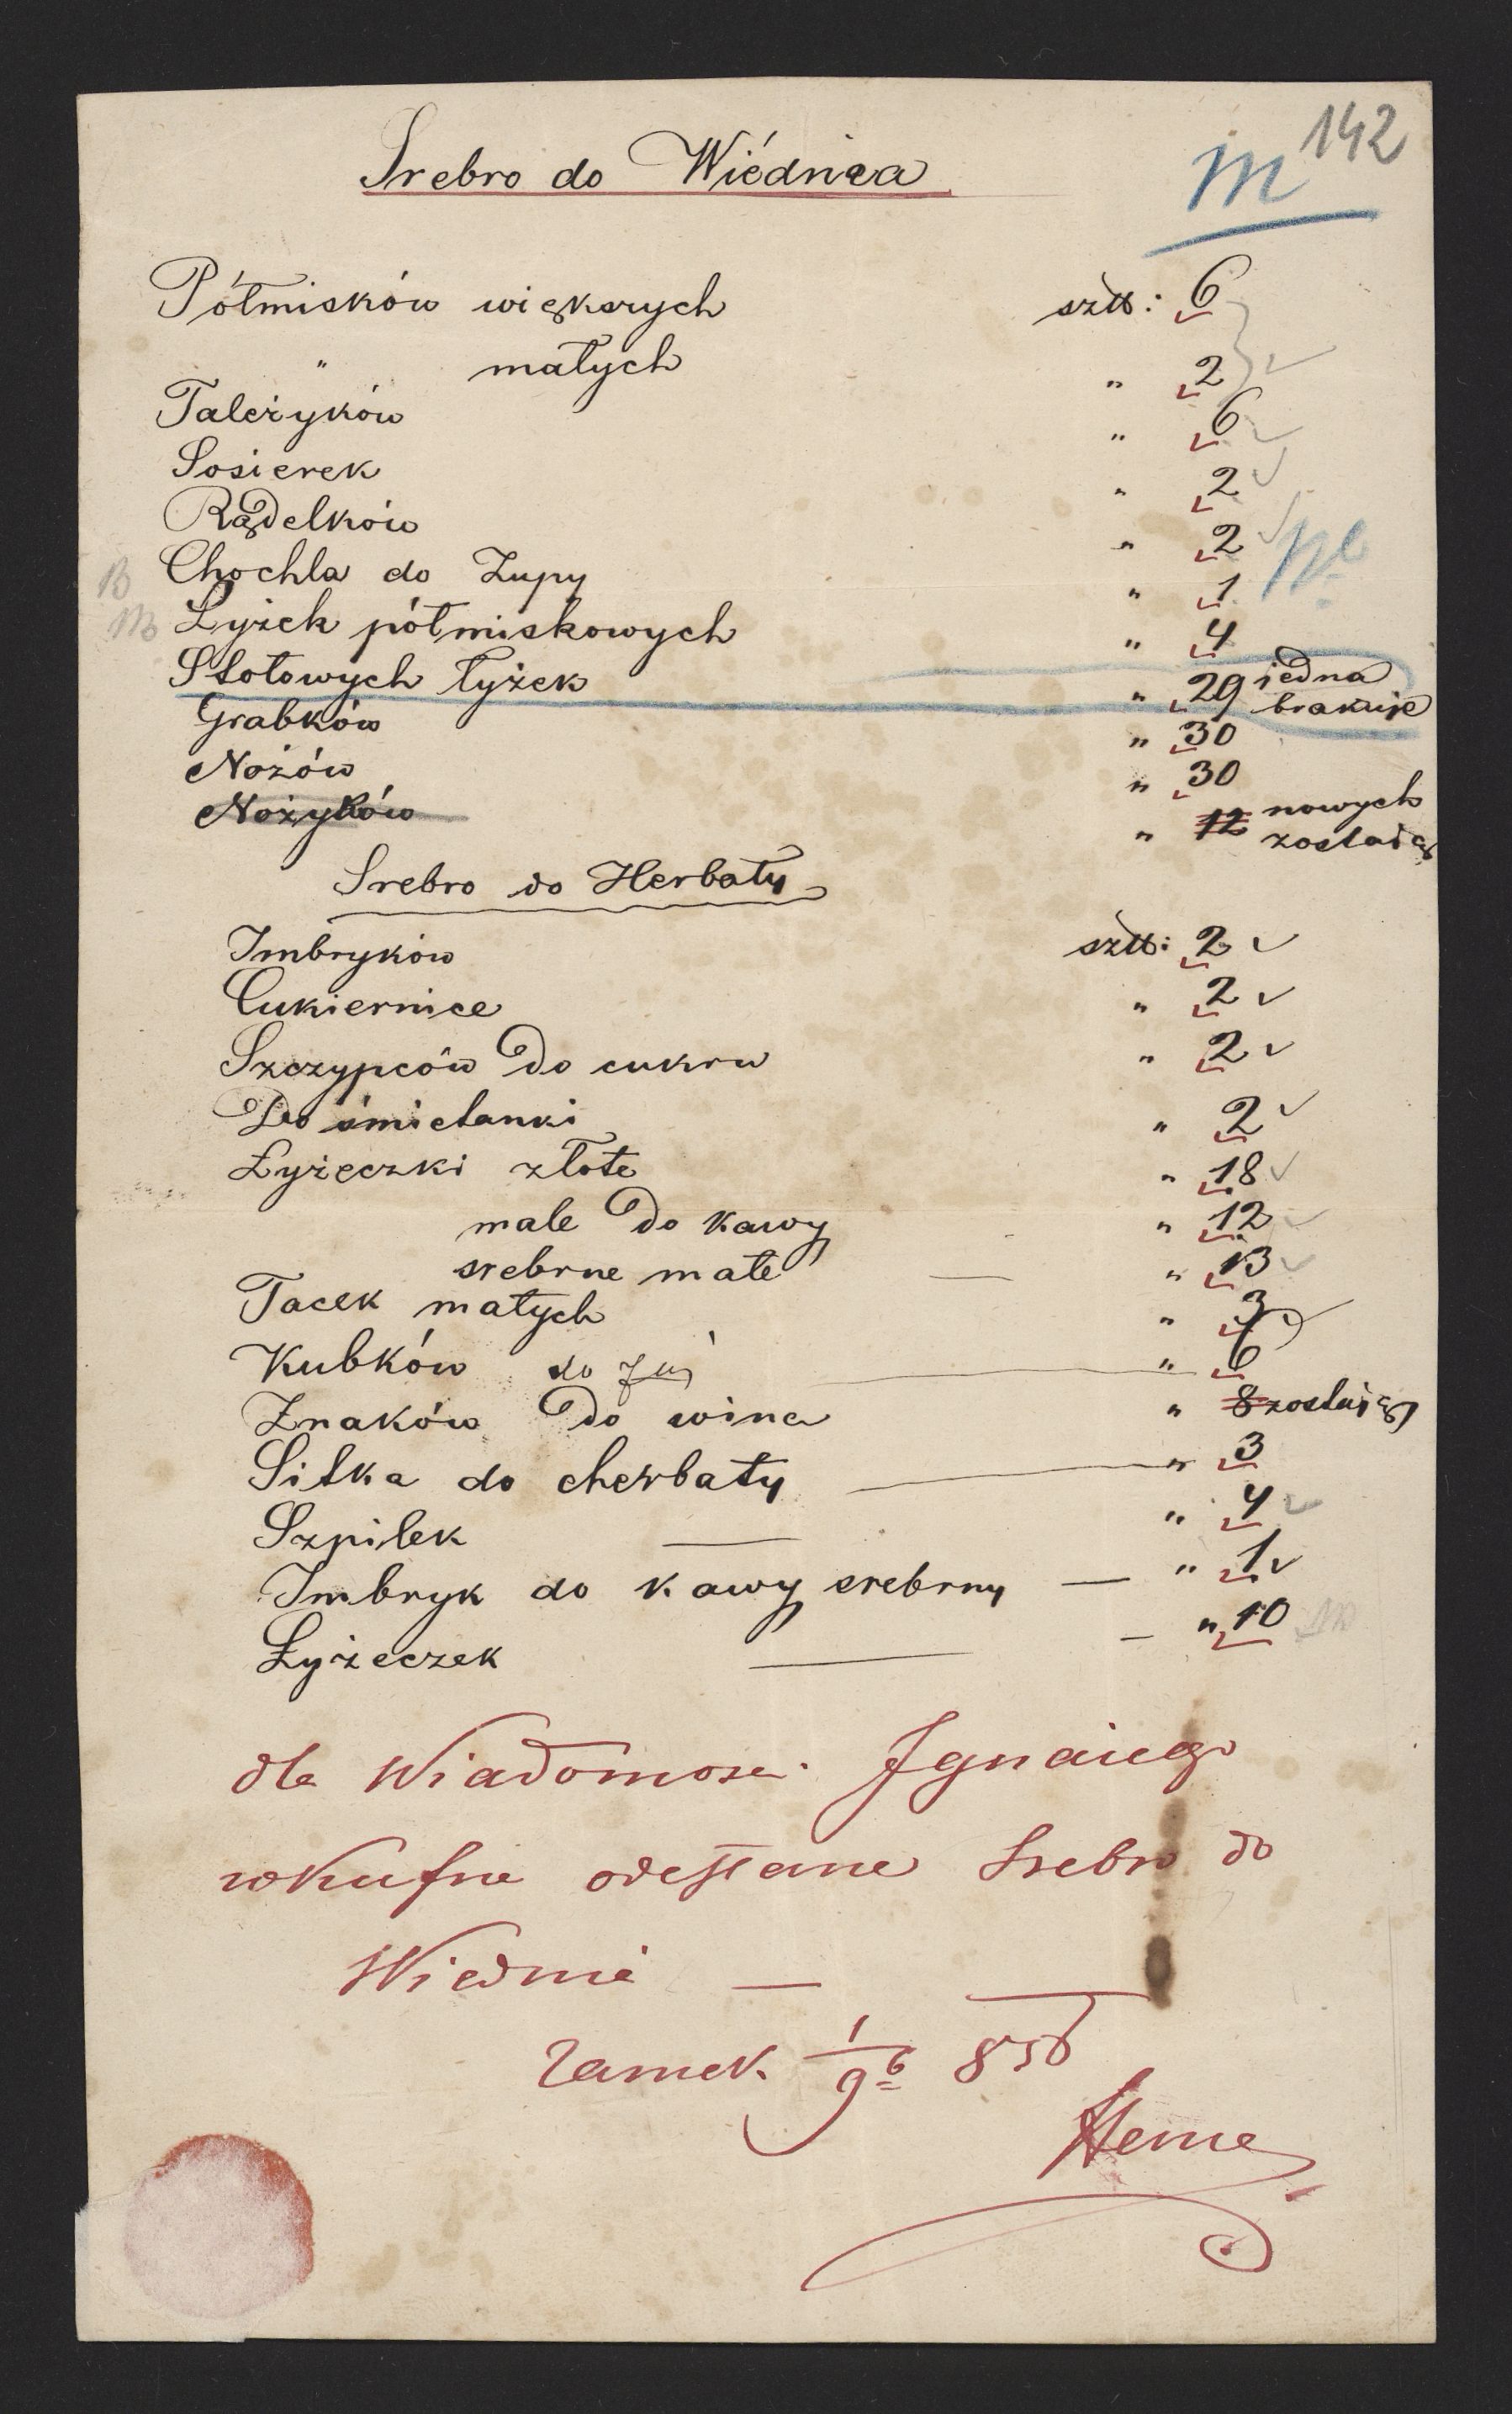 142
m
Srebro do Wiédnia
Pótmisków większych sztk: 6
" matych " 2
Tależyków " 6
Sosierek " 2
Rądelków " 2
Chochla do Zupy " 1
Łyżek pótmiskowych " 4
Stotowych tyżek " 29 jedna brakuje
Grabków " 30
Nożów " 30
Nożyków " 12 nowych zostają
Srebro do Herbaty
Imbryków sztk: 2
Cukiernice " 2
Szczypców do cukru " 2
Do śmietanki " 2
Łyżeczki złote " 18
male do kawy " 12
srebrne mate " 13
Tacek matych " 3
Kubków do " 6
Znaków do wina " 8 zostają
Sitka do cherbaty " 3
Szpilek " 4
Imbryk do kawy srebrny " 1
Łyżeczek " 10
dla Wiadomosci Ignacego
w Kufrze odesłane Srebro do
Wiednia
Zamek 1/9b 858